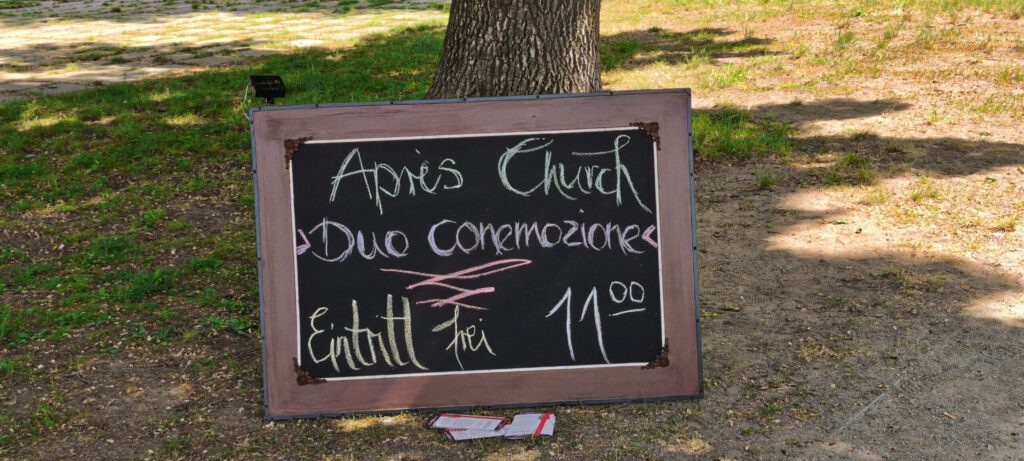 Après Church
>Duo conemozione<
Eintritt frei 11⁰⁰